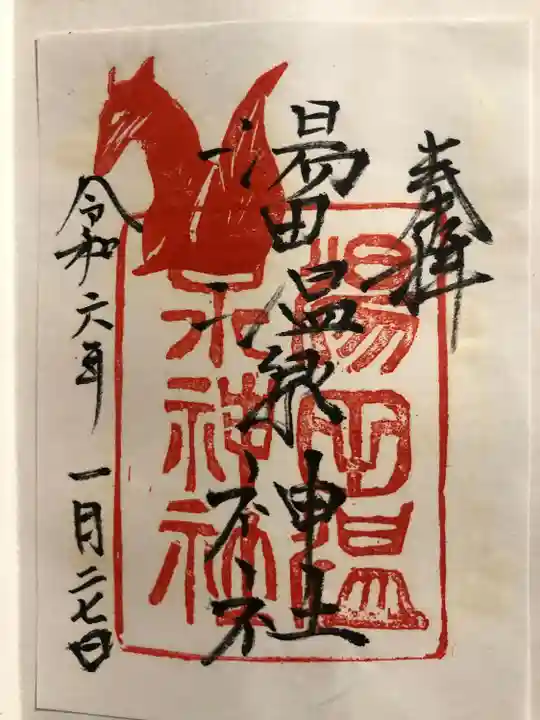 奉拝
湯田温泉神社
湯田温
泉神社
令和六年一月二七日